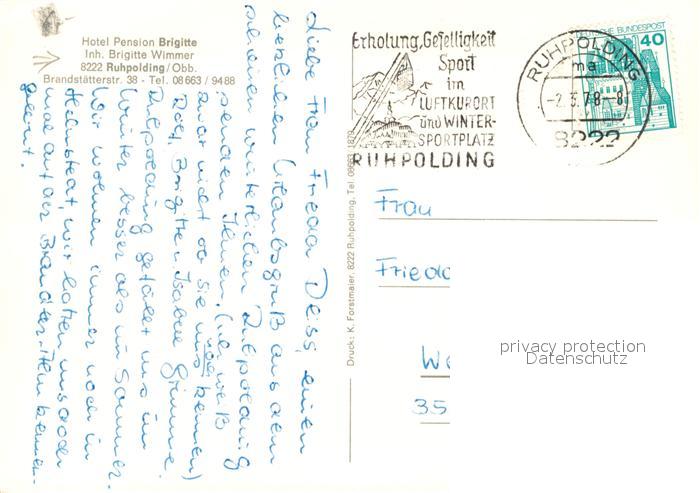 Hotel Pension Brigitte
Inh. Brigitte Wimmer
8222 Ruhpolding/Obb.
Brandstätterstr. 38 - Tel. 08663/9488
Liebe Frau Frieda Deiss, einen
herzlichen Urlaubsgruß aus dem
schönen winterlichen Ruhpolding
senden Ihnen, (ich weiß
auch nicht ob Sie uns noch kennen)
Rolf, Brigitte u. Isabell
Ruhpolding gefällt uns im
Winter besser als im Sommer.
Wir wohnen immer noch in
wir hatten uns
mal auf der kennen-
gelernt.
Druck: K. Forstmaier, 8222 Ruhpolding, Tel. 08663
Erholung, Geselligkeit
Sport
im
LUFTKURORT
und WINTER-
SPORTPLATZ
RUHPOLDING
RUHPOLDING
ma
-2.3.78-8
8222
DEUTSCHE BUNDESPOST
40
Frau
Frieda
We
35
privacy protection
Datenschutz